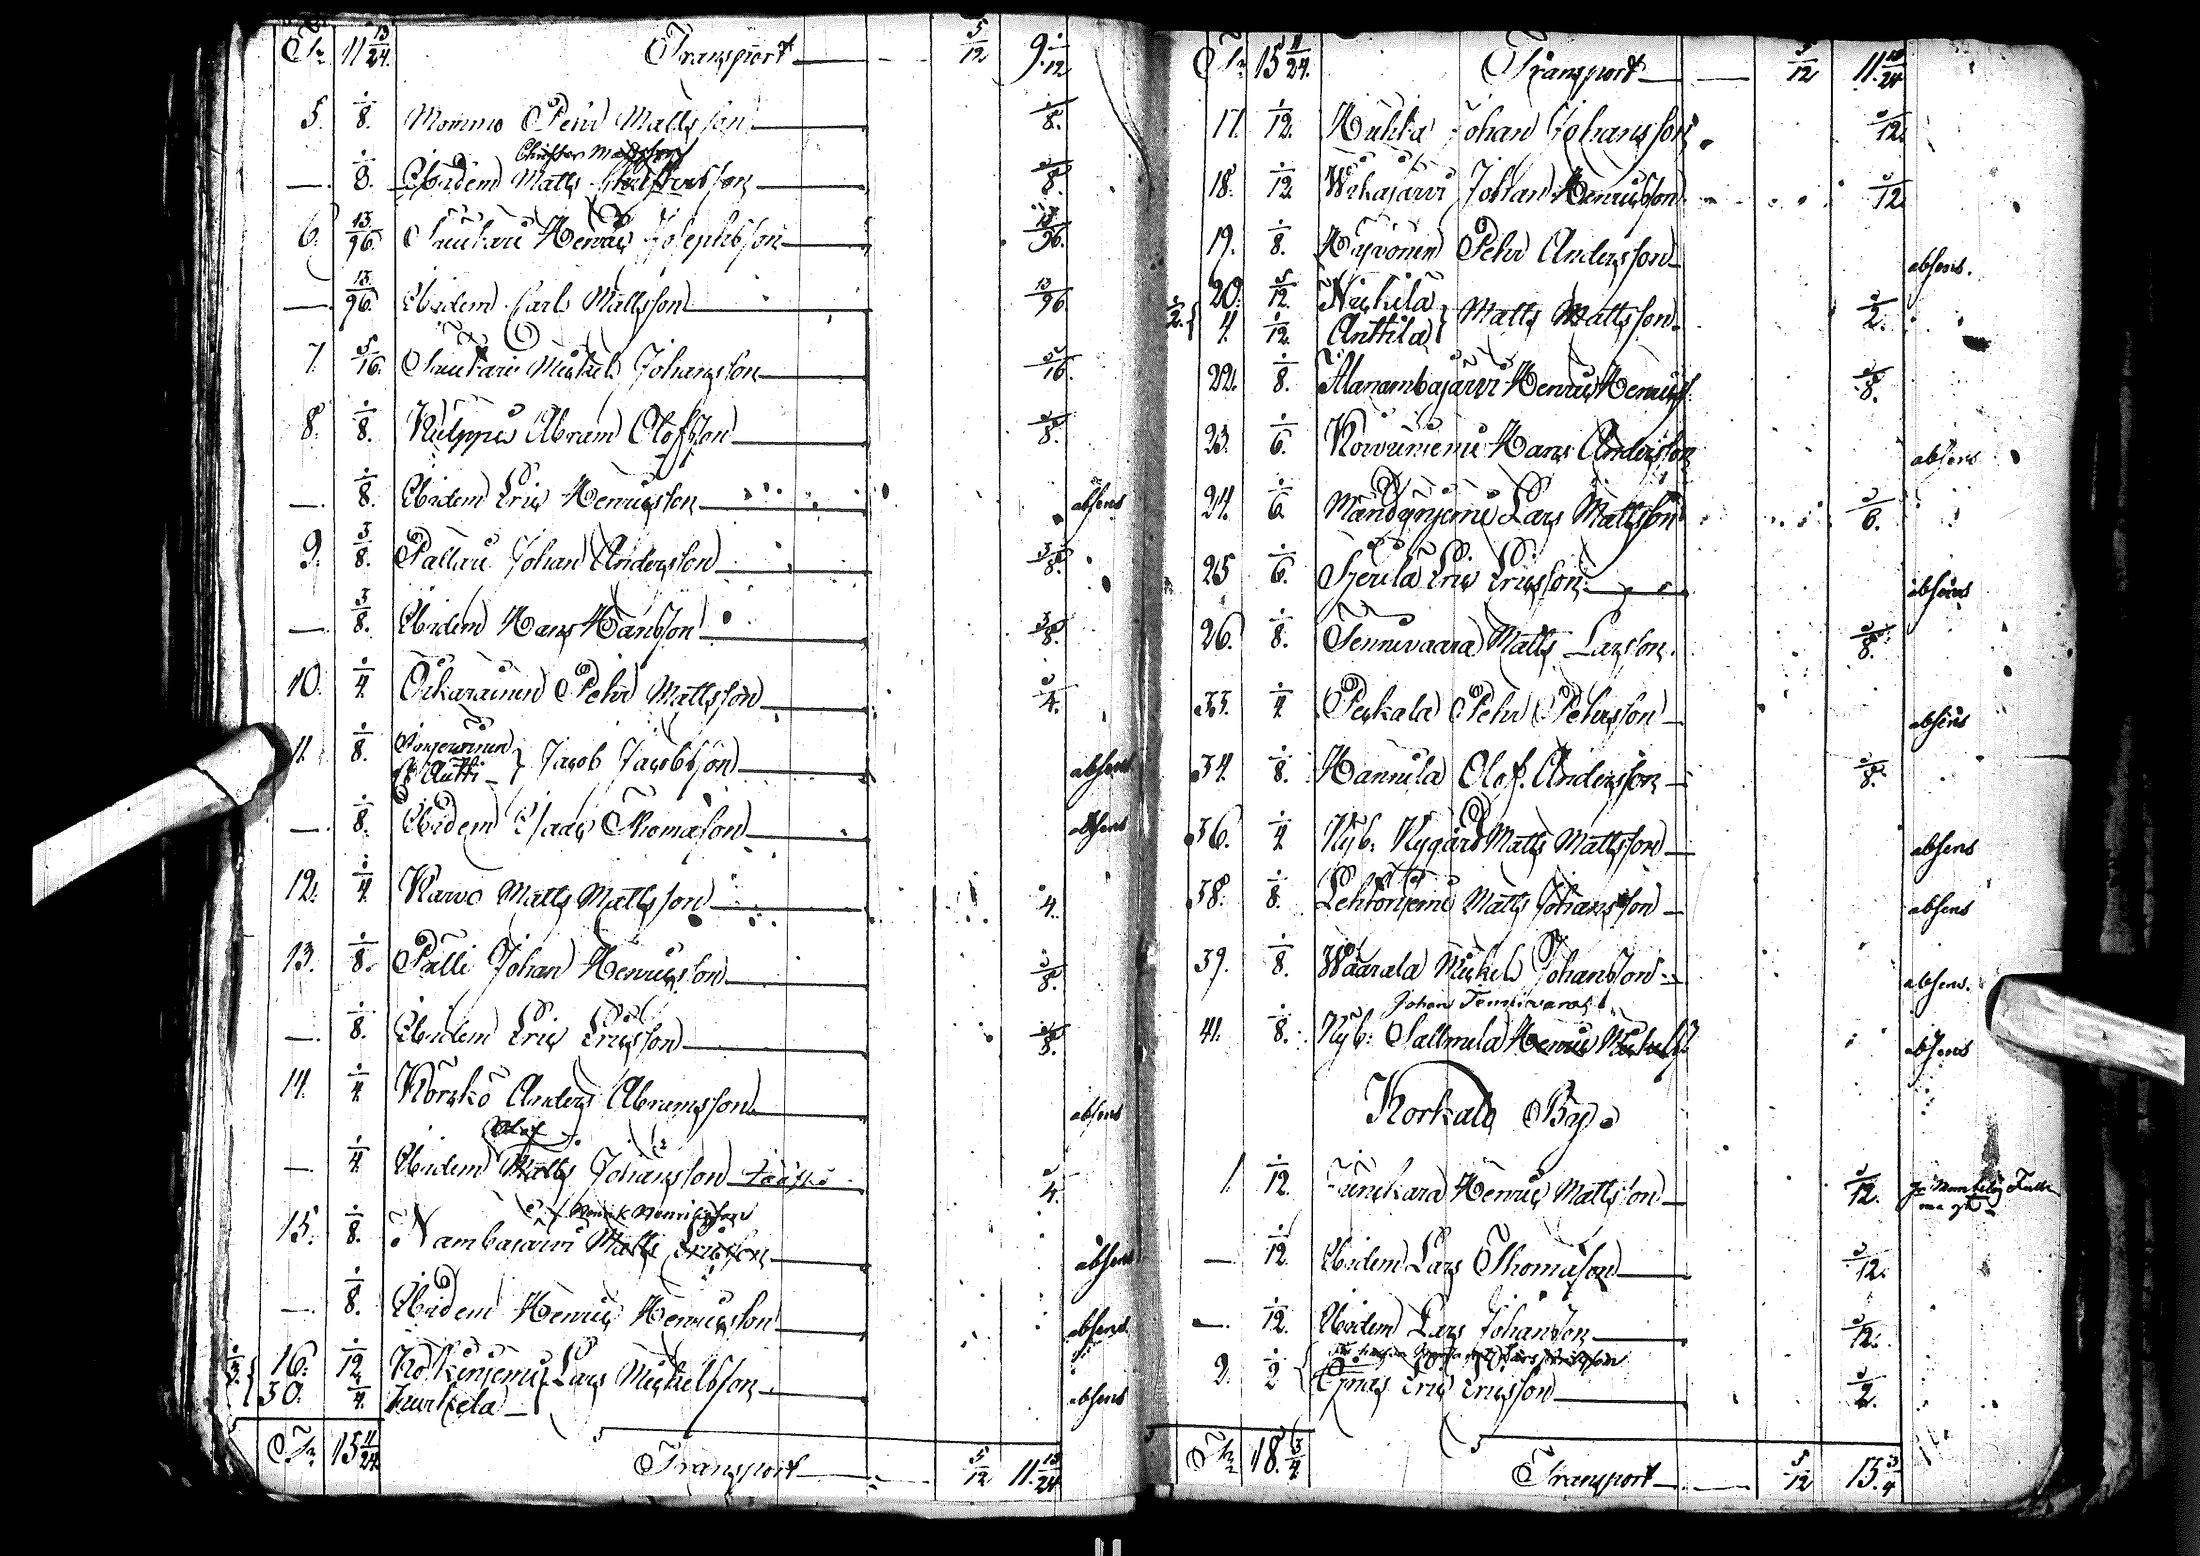 Tr. 11 13/24. Transport 5/12 9 1/12
5. 1/8. Mommo Pehr Mattsson 1/8.
Christer Mattsson
—. 1/8. Ibidem Matts 1/8.
6. 13/96. Henric Josephsson 13/96.
—. 13/96. Ibidem Carl Mattsson 13/96
7. 5/16. Michel Johansson 5/16.
8. 1/8. Abram Olofsson 1/8.
—. 1/8. Ibidem Eric Henricsson absens
9. 3/8. Pallari Johan Andersson 3/8.
—. 3/8. Ibidem Hans Hansson 3/8.
10. 1/4. Oikarainen Pehr Mattsson 1/4.
11. 1/8. Jacob Jacobsson absens
& Autti
—. 1/8. Ibidem Isaac Thomasson absens
12. 1/4. Karvo Matts Mattsson 1/4.
13. 1/8. Pulli Johan Henricsson 1/8.
—. 1/8. Ibidem Eric Ericsson 1/8.
14. 1/4. Körkö Anders Abramsson absens
Olof
—. 1/4. Ibidem Matts Johansson 1/4.
Henrik Henriksson
15. 1/8. Nambajärvi Matts Ericsson absens
—. 1/8. Ibidem Henric Henricsson absens
16. 1/12. Lars Michelsson
30. 1/4. absens
Tr. 15 11/24. Transport 5/12 11 13/24
Tr. 15 11/24. Transport 5/12 11 13/24
17. 1/12. Huhta Johan Johansson 1/12.
18. 1/12. Wikajärvi Johan Henricsson 1/12.
19. 1/8. Pehr Andersson absens.
1/2. 20. 5/12. Nickilä Matts Mattsson 1/2.
4. 1/12. Anttila
22. 1/8. Alanambajärvi Henric Henricss. 1/8.
23. 1/6. Korvuniemi Hans Andersson absens
24. 1/6. Mändyniemi Lars Mattsson 1/6.
25 1/6. Sierilä Eric Ericsson absens
26. 1/8. Tennivaara Matts Larsson. 1/8.
33. 1/4 Peckala Pehr Pehrsson absens
34. 1/8. Hannila Olof Andersson 1/8.
36. 1/4 Nyb. Nygård Matts Mattsson absens
38. 1/8. Lehtoniemi Matts Johansson absens
39. 1/8. Waarala Michel Johansson absens.
Johan Tennivaara
41. 1/8. Nyb. Sallmela Henric absens
Korkalo By.
1. 1/12. Henric Mattsson 1/12.
—. 1/12. Ibidem Lars Thomasson 1/12.
—. 1/12. Ibidem Lars Johansson 1/12.
2. 1/2 Eric Ericsson 1/2.
Tr. 18. 3/4. Transport 5/12 13 3/4